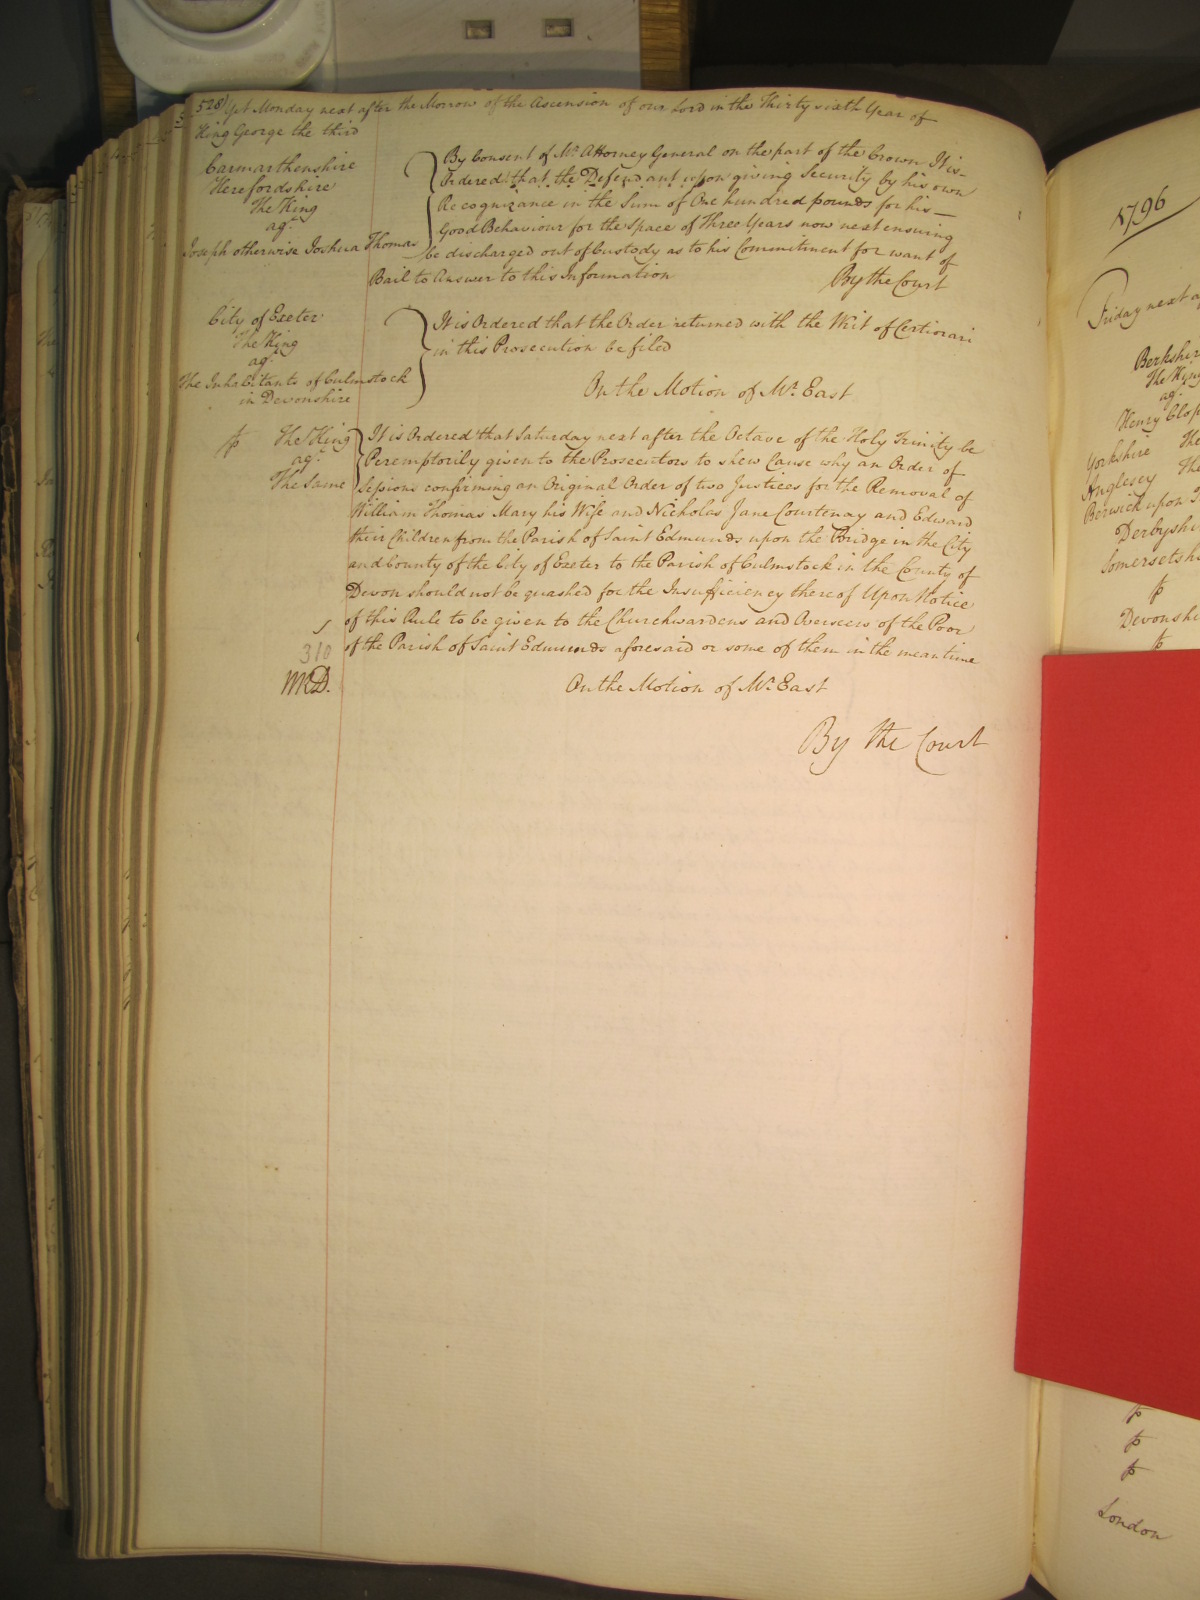 528) Yet Monday next after the Morrow of the Ascension of our Lord in the Thirty sixth Year of
King George the third
Carmarthenshire
Herefordshire
The King
agt.
Joseph otherwise Joshua Thomas
By Consent of Mr. Attorney General on the part of the Crown It is
Ordered that the Defendant upon giving Security by his own
Recognizance in the Sum of One hundred pounds for his
Good Behaviour for the Space of Three Years now next ensuing
be discharged out of Custody as to his Commitment for want of
Bail to Answer to this Information By the Court
City of Exeter
The King
agt.
The Inhabitants of Culmstock
in Devonshire
It is Ordered that the Order returned with the Writ of Certiorari
in this Prosecution be filed
On the Motion of Mr. East
The King
agt.
The Same
It is Ordered that Saturday next after the Octave of the Holy Trinity be
Peremptorily given to the Prosecutors to shew Cause why an Order of
Sessions confirming an Original Order of two Justices for the Removal of
William Thomas Mary his Wife and Nicholas Jane Courtenay and Edward
their Children from the Parish of Saint Edmunds upon the Bridge in the City
and County of the City of Exeter to the Parish of Culmstock in the County of
Devon should not be quashed for the Insufficiency thereof Upon Notice
of this Rule to be given to the Churchwardens and Overseers of the Poor
of the Parish of Saint Edmunds aforesaid or some of them in the meantime
310
On the Motion of Mr. East
By the Court
1796
Friday next a
Berkshir
The King
agt.
Henry Clop
Yorkshire The
Anglesey The
Berwick upon T
Derbyshi
Somersetsh
Devonshi
London